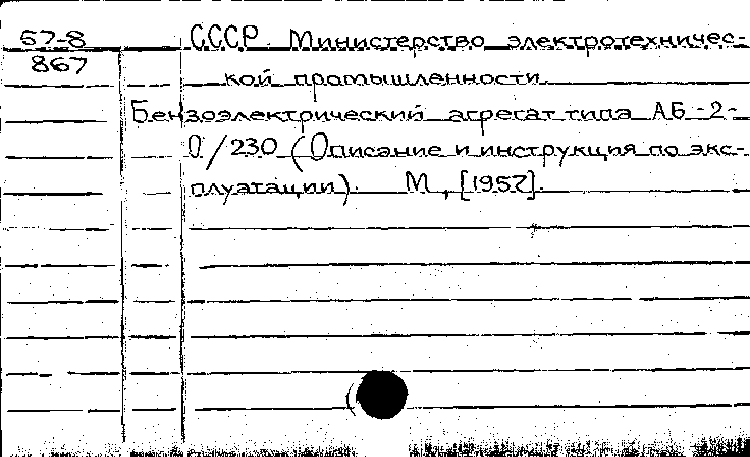 57-8 СССР. Министерство электротехничес-
867 кой промышленности.
Бензоэлектрический агрегат типа АБ-2-
0/230 (Описание и инструкция по экс-
плуатации). М., [1957].